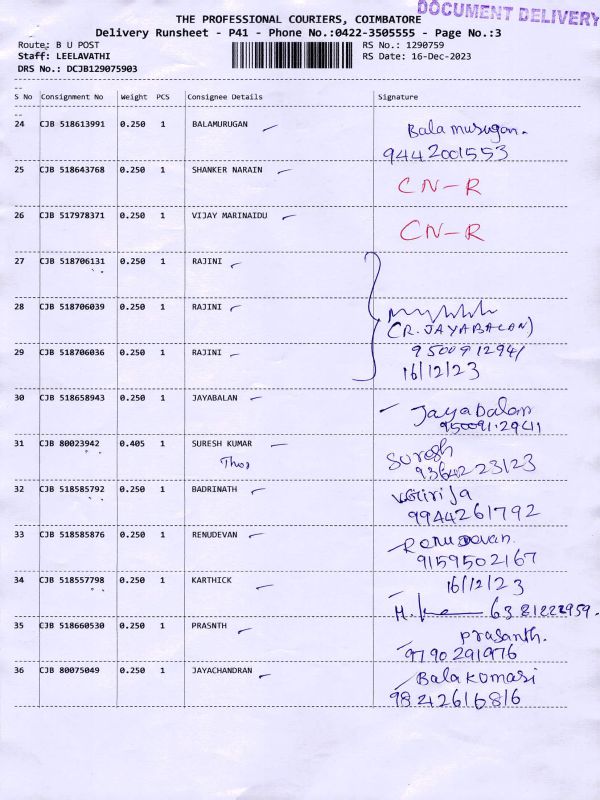 DOCUMENT DELIVERY
THE PROFESSIONAL COURIERS, COIMBATORE
Delivery Runsheet - P41 - Phone No.:0422-3505555 - Page No.:3
Route: B U POST RS No.: 1290759
Staff: LEELAVATHI RS Date: 16-Dec-2023
DRS No.: DCJB129075903
S No Consignment No Weight PCS Consignee Details Signature
24 CJB 518613991 0.250 1 BALAMURUGAN Balamurugan.
9442001553
25 CJB 518643768 0.250 1 SHANKER NARAIN CN-R
26 CJB 517978371 0.250 1 VIJAY MARINAIDU CN-R
27 CJB 518706131 0.250 1 RAJINI
28 CJB 518706039 0.250 1 RAJINI
(R.JAYABALAN)
29 CJB 518706036 0.250 1 RAJINI 9500912941
16/12/23
30 CJB 518658943 0.250 1 JAYABALAN Jayabalan
9500912941
31 CJB 80023942 0.405 1 SURESH KUMAR Suresh
9364223123
32 CJB 518585792 0.250 1 BADRINATH
9944261792
33 CJB 518585876 0.250 1 RENUDEVAN Renudevan.
9159502167
34 CJB 518557798 0.250 1 KARTHICK 16/12/23
35 CJB 518660530 0.250 1 PRASNTH prasanth.
9790291976
36 CJB 80075049 0.250 1 JAYACHANDRAN Balakumari
9842616816